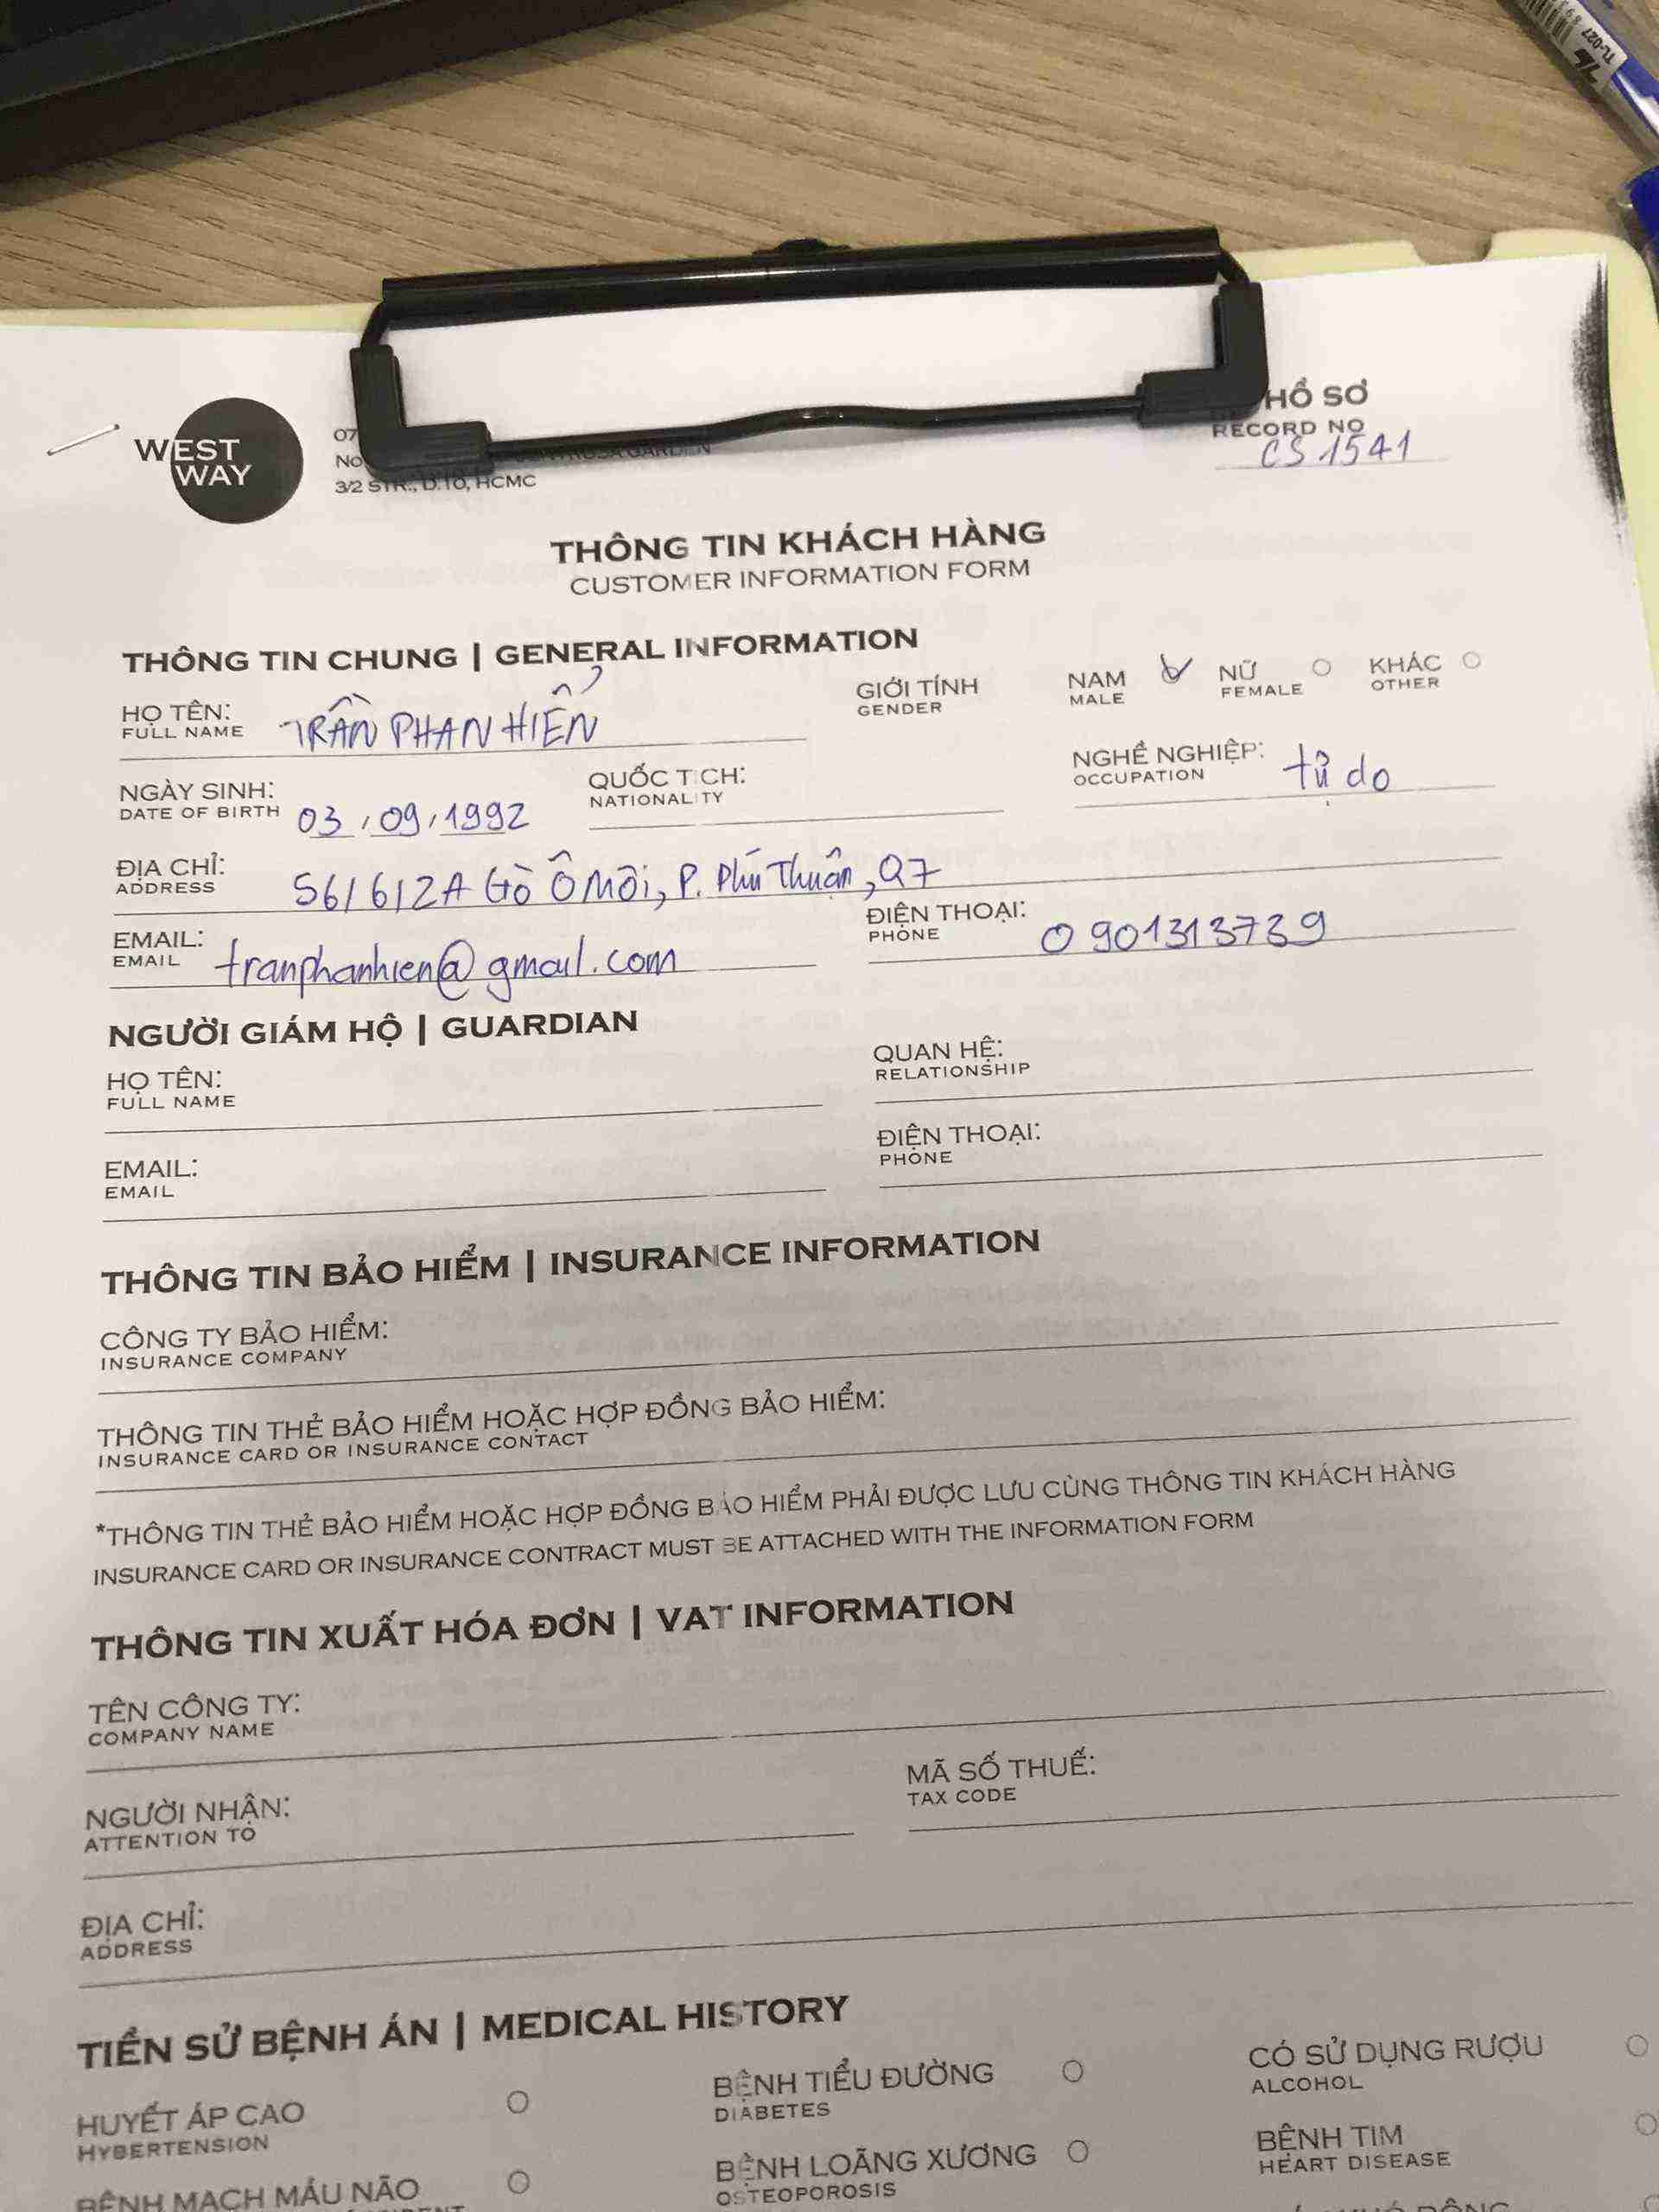 TL-027
WEST
WAY
07
No
3/2 STR., D.10, HCMC
HỒ SƠ
RECORD NO
CS 1541
THÔNG TIN KHÁCH HÀNG
CUSTOMER INFORMATION FORM
THÔNG TIN CHUNG | GENERAL INFORMATION
HỌ TÊN: TRẦN PHAN HIỂN
FULL NAME
GIỚI TÍNH
GENDER
NAM
MALE
NỮ
FEMALE
KHÁC
OTHER
NGÀY SINH:
DATE OF BIRTH 03, 09, 1992
QUỐC TỊCH:
NATIONALITY
NGHỀ NGHIỆP: tự do
OCCUPATION
ĐỊA CHỈ: 561612A Gò Ô Môi, P. Phú Thuận, Q7
ADDRESS
EMAIL: tranphanhien@gmail.com
EMAIL
ĐIỆN THOẠI: 0901313739
PHONE
NGƯỜI GIÁM HỘ | GUARDIAN
HỌ TÊN:
FULL NAME
QUAN HỆ:
RELATIONSHIP
EMAIL:
EMAIL
ĐIỆN THOẠI:
PHONE
THÔNG TIN BẢO HIỂM | INSURANCE INFORMATION
CÔNG TY BẢO HIỂM:
INSURANCE COMPANY
THÔNG TIN THẺ BẢO HIỂM HOẶC HỢP ĐỒNG BẢO HIỂM:
INSURANCE CARD OR INSURANCE CONTACT
*THÔNG TIN THẺ BẢO HIỂM HOẶC HỢP ĐỒNG BẢO HIỂM PHẢI ĐƯỢC LƯU CÙNG THÔNG TIN KHÁCH HÀNG
INSURANCE CARD OR INSURANCE CONTRACT MUST BE ATTACHED WITH THE INFORMATION FORM
THÔNG TIN XUẤT HÓA ĐƠN | VAT INFORMATION
TÊN CÔNG TY:
COMPANY NAME
NGƯỜI NHẬN:
ATTENTION TO
MÃ SỐ THUẾ:
TAX CODE
ĐỊA CHỈ:
ADDRESS
TIỀN SỬ BỆNH ÁN | MEDICAL HISTORY
HUYẾT ÁP CAO
HYBERTENSION
BỆNH TIỂU ĐƯỜNG
DIABETES
CÓ SỬ DỤNG RƯỢU
ALCOHOL
BỆNH MẠCH MÁU NÃO
BỆNH LOÃNG XƯƠNG
OSTEOPOROSIS
BỆNH TIM
HEART DISEASE